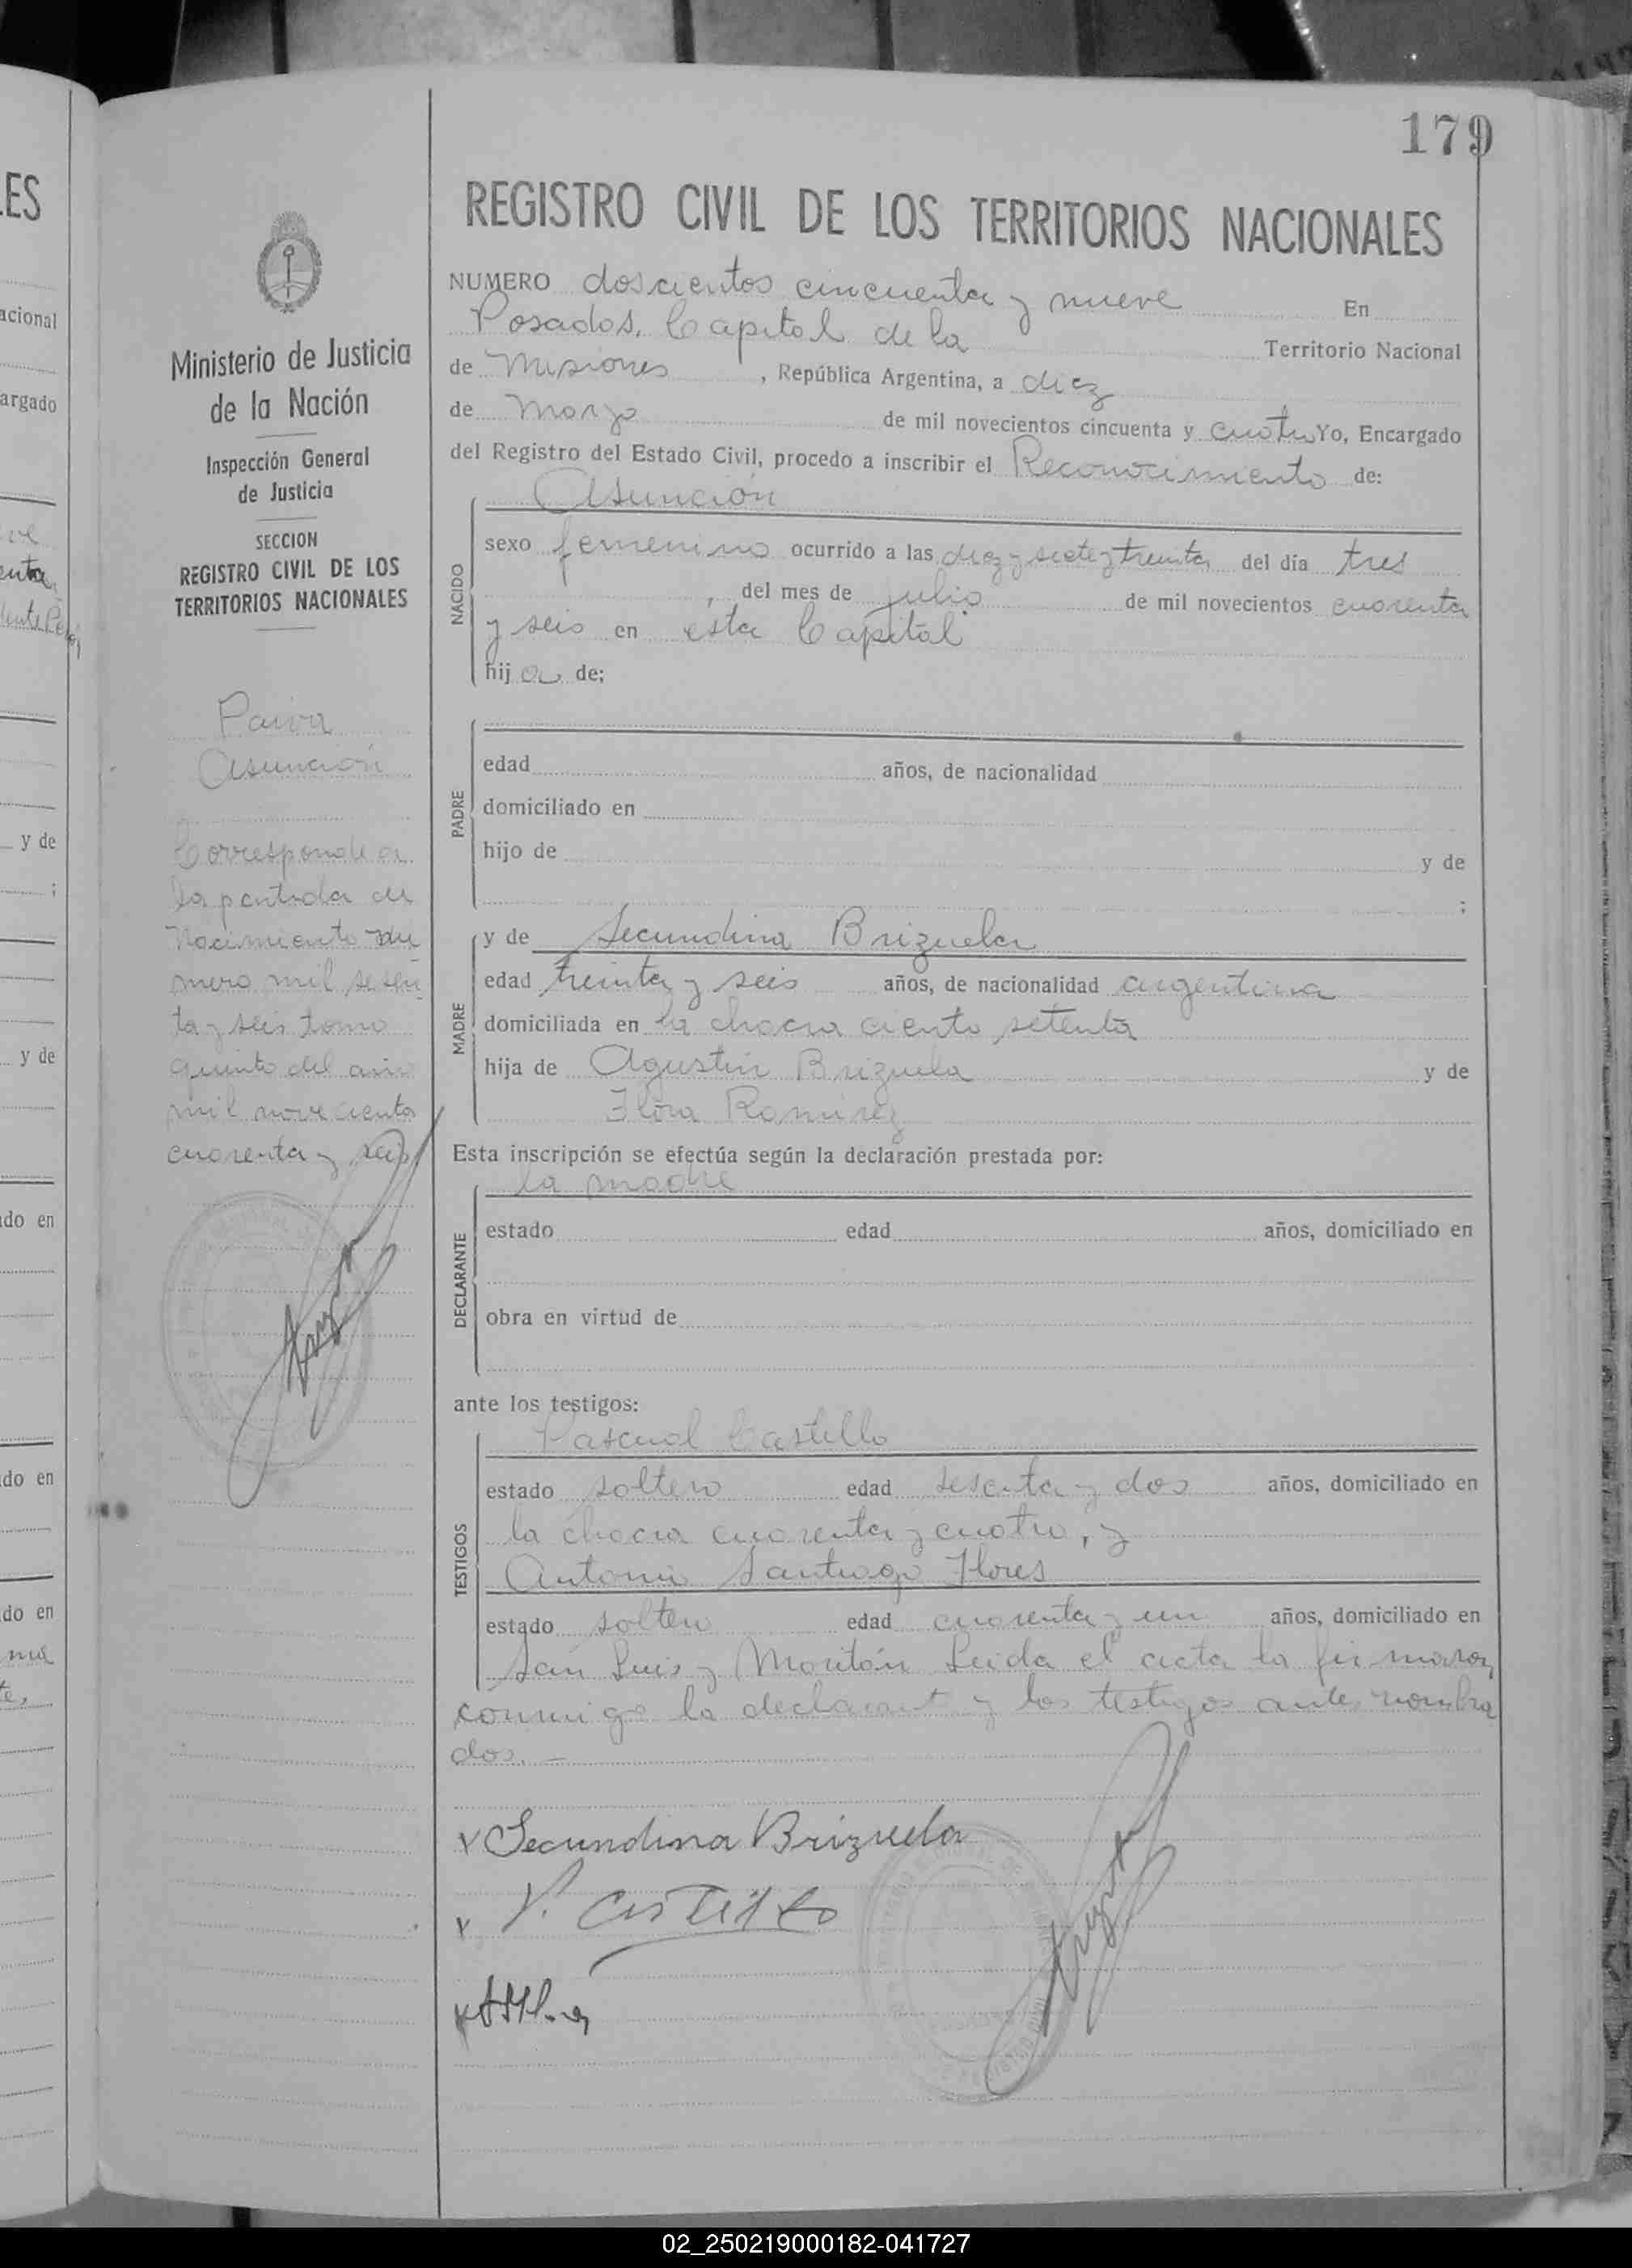 179
REGISTRO CIVIL DE LOS TERRITORIOS NACIONALES
NUMERO doscientos cincuenta y nueve En
Posadas, Capital de la Territorio Nacional
de Misiones , República Argentina, a diez
de Marzo de mil novecientos cincuenta y cuatro Yo, Encargado
del Registro del Estado Civil, procedo a inscribir el Reconocimiento de:
Asunción
NACIDO
sexo femenino ocurrido a las diez y siete y treinta del día tres
, del mes de julio de mil novecientos cuarenta
y seis en esta Capital
hij a de;
PADRE
edad años, de nacionalidad
domiciliado en
hijo de y de
;
MADRE
y de Secundina Brizuela
edad treinta y seis años, de nacionalidad argentina
domiciliada en la chacra ciento setenta
hija de Agustin Brizuela y de
Flora Ramirez
Esta inscripción se efectúa según la declaración prestada por:
la madre
DECLARANTE
estado edad años, domiciliado en
obra en virtud de
ante los testigos:
TESTIGOS
Pascual Castillo
estado soltero edad sesenta y dos años, domiciliado en
la chacra cuarenta y cuatro, y
Antonio Santiago Flores
estado soltero edad cuarenta y un años, domiciliado en
San Luis y Leida el acta la firmaron
conmigo la declarant y los testigos antes nombra
dos. —
x Secundina Brizuela
x P. Castillo
x
Ministerio de Justicia
de la Nación
Inspección General
de Justicia
SECCION
REGISTRO CIVIL DE LOS
TERRITORIOS NACIONALES
Paiva
Asunción
Corresponde a
la partida de
Nacimiento nu
mero mil sesen
ta y seis tomo
quinto del año
mil novecientos
cuarenta y seis
LES
acional
argado
y de
;
y de
do en
do en
do en
02_250219000182-041727